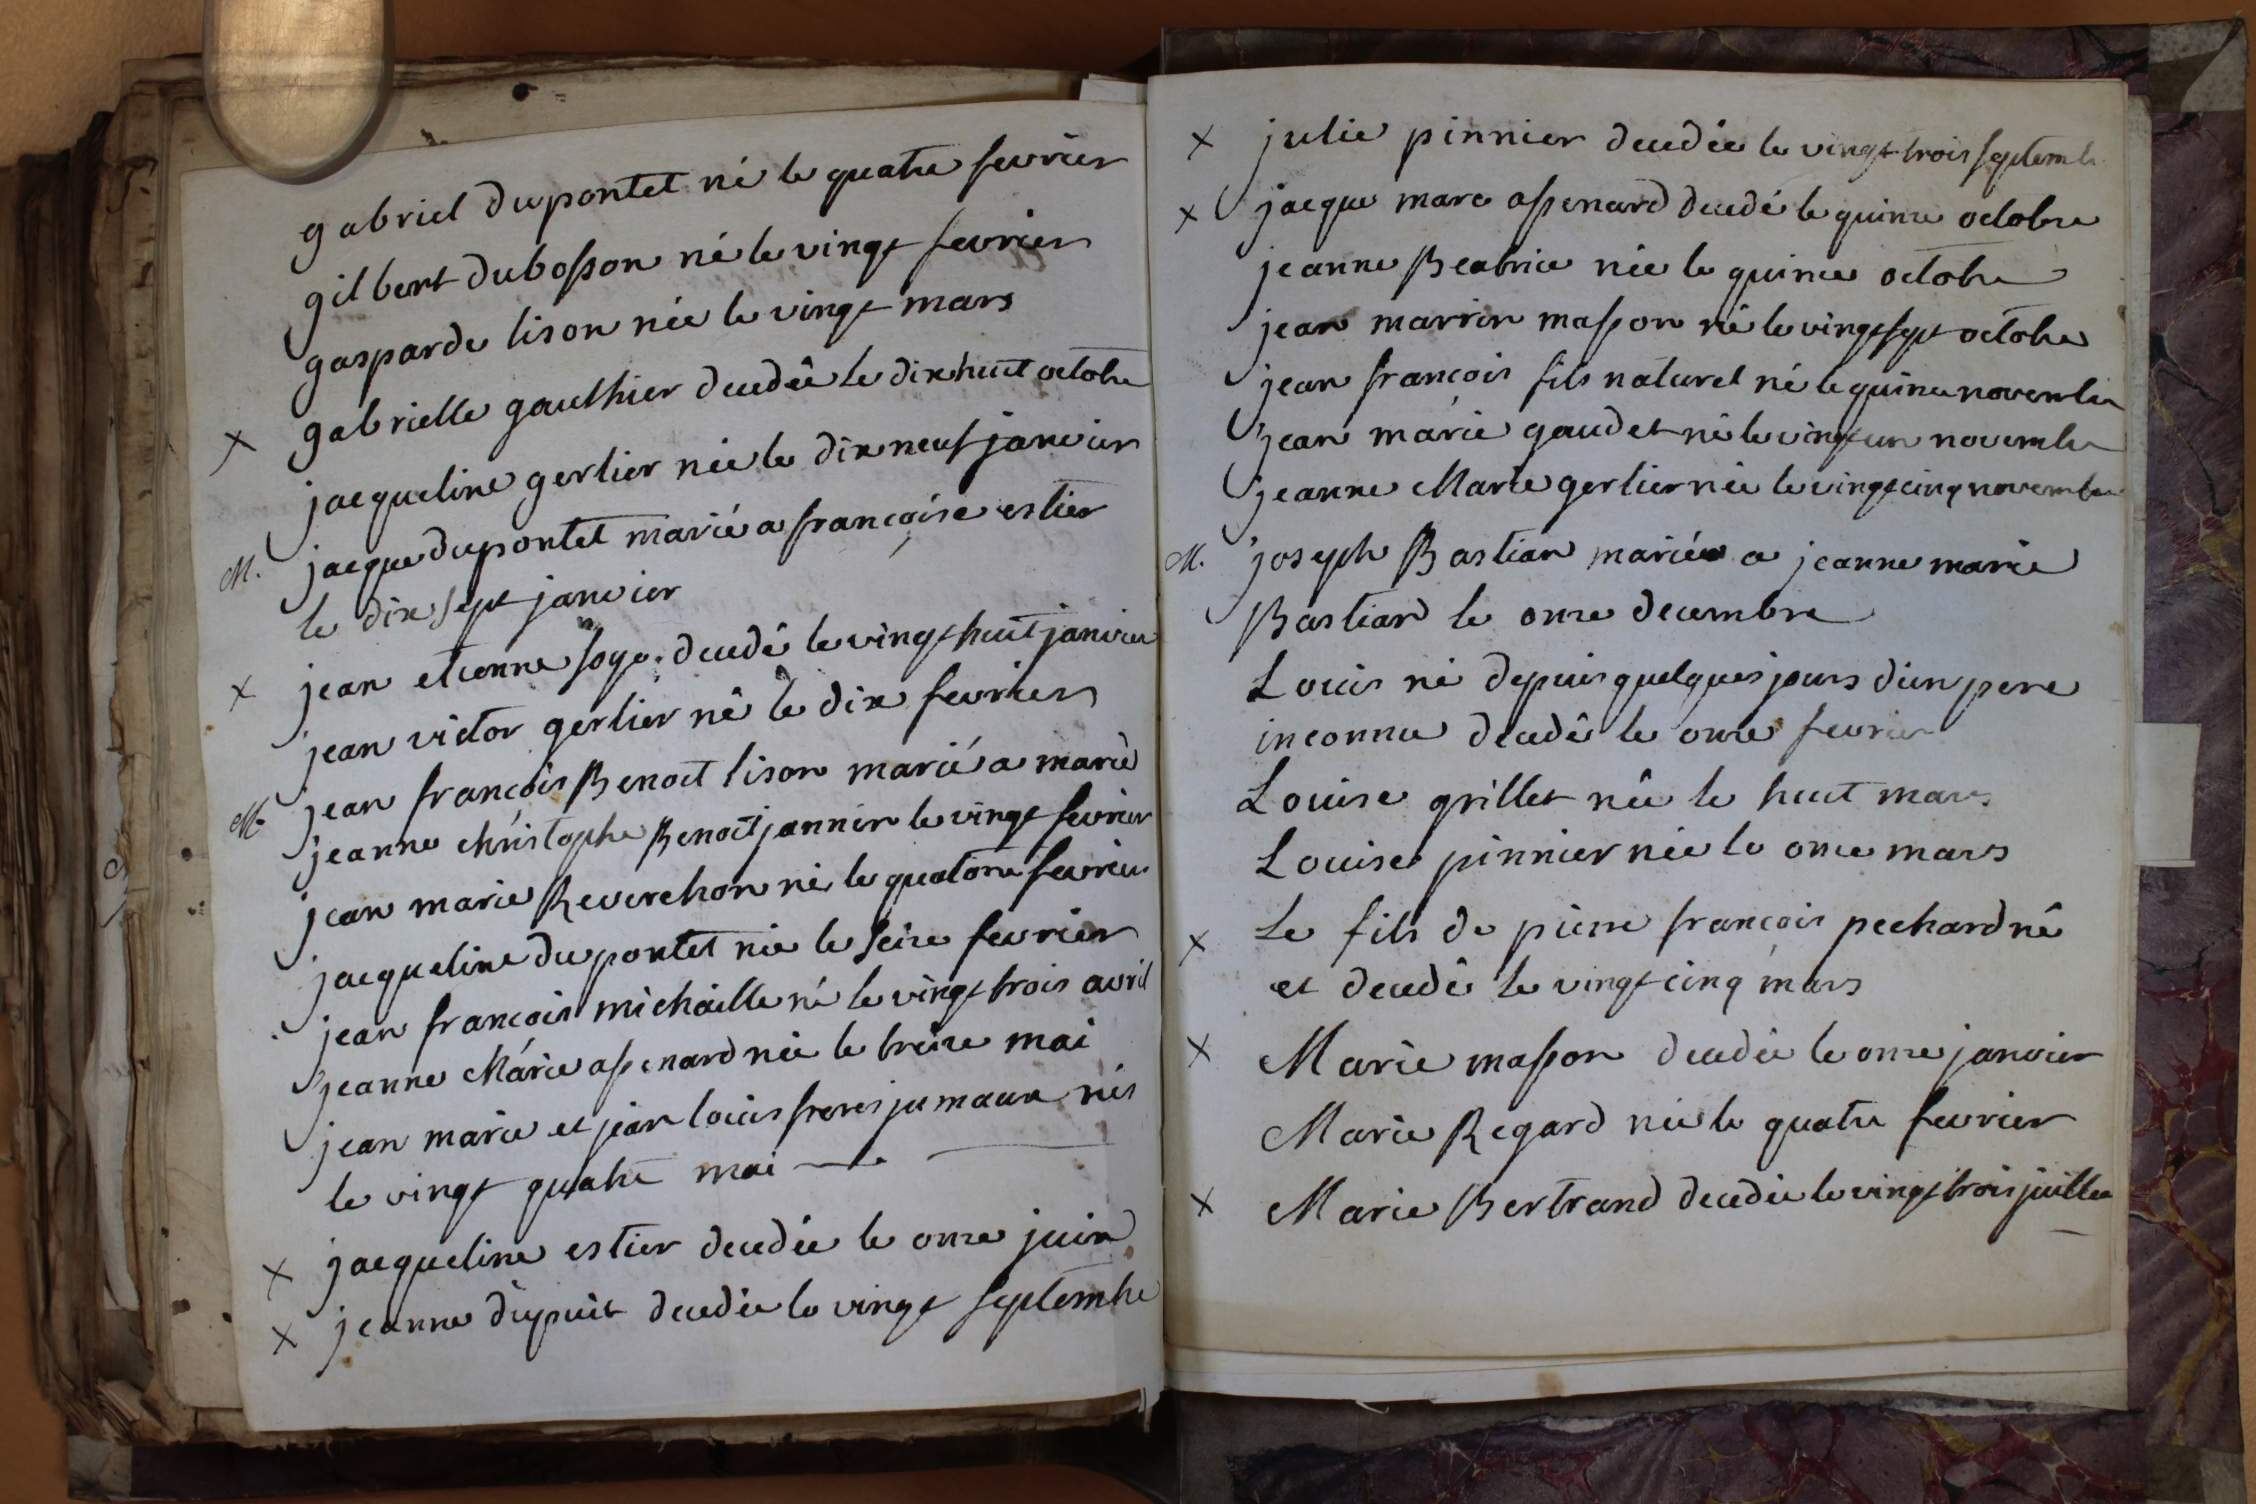 gabriel dupontet né le quatre fevrier
gilbert dubosson né le vingt fevrier
gasparde lison née le vingt mars
x gabrielle gauthier decedée le dix huit octobre
jacqueline gerlier née le dix neuf janvier
M. jacque dupontet marié a françoise estier
le dix sept janvier
x jean etienne soye. decedé le vingt huit janvier
jean victor gerlier né le dix fevrier
M. jean françois Benoit lison marié a marie
jeanne christophe Benoit jannin le vingt fevrier
jean marie Reverchon né le quatorze fevrier
jacqueline dupontet née le seize fevrier
jean françois michaille né le vingt trois avril
jeanne Marie assenard née le treize mai
jean marie et jean louis freres jumaux nés
le vingt quatre mai
x jacqueline estier decedée le onze juin
x jeanne dupuit decedée le vingt septembre
x julie pinnier decedée le vingt trois septemb
x jacque marc assenard decedé le quinze octobre
jeanne Beatrice née le quinze octobre
jean marrin masson né le vingt sept octobre
jean françois fils naturel né le quinze novembre
jean marie gaudet né le vingt un novembre
jeanne Marie gerlier née le vingt cinq novembre
M. joseph Bastian marié a jeanne marie
Bastian le onze decembre
Louis né depuis quelques jours d'un pere
inconnu decedé le onze fevrier
Louise grillet née le huit mars
Louise pinnier née le onze mars
x Le fils de pierre françois pechard né
et decedé le vingt cinq mars
x Marie masson decedée le onze janvier
Marie Regard née le quatre fevrier
x Marie Bertrand decedée le vingt trois juillet